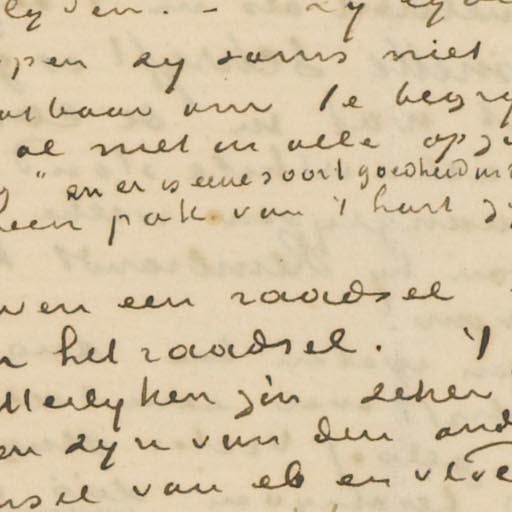 lyden. – zy zy
open zy soms niet
atbaar om te begry
al niet in alle opzi
" en er is eene soort goedheid in
een pak van 't hart zy
ven een raadsel
n het raadsel. 't
tterlyken zin zeker
en zyn van den and
nsel van eb en vloe